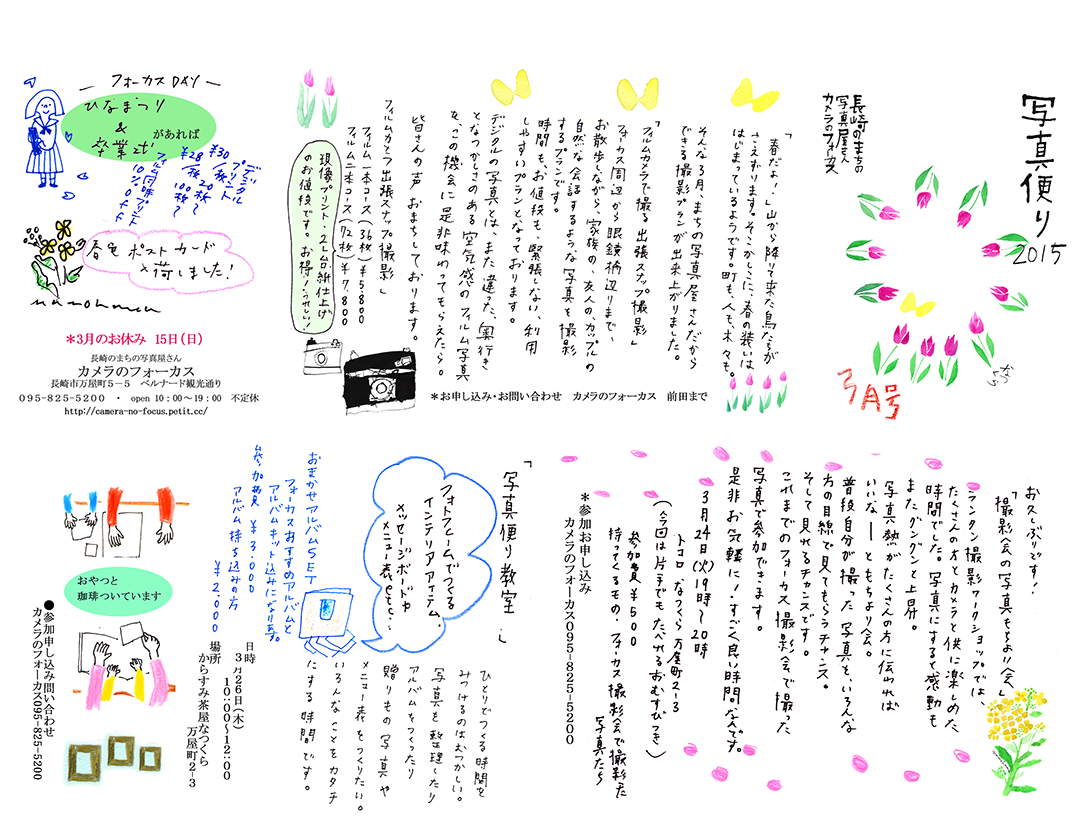 写真便り
2015
長崎のまちの
写真屋さん
カメラのフォーカス
3月号
「春だよ！」山から降りて来た鳥たちが
さえずります。そこかしこに、春の装いは
はじまっているようです。町も、人も、木々も。
そんな3月、まちの写真屋さんだから
できる撮影プランが出来上がりました。
「フィルムカメラで撮る出張スナップ撮影」
フォーカス周辺から眼鏡橋辺りまで、
お散歩しながら、家族の、友人の、カップルの
自然な会話するような写真を撮影
するプランです。
時間も、お値段も、緊張しない、利用
しやすいプランとなっております。
デジタルの写真とは、また違った、奥行き
となつかしさのある空気感のフィルム写真
を、この機会に是非味わってもらえたら。
皆さんの声、おまちしております。
フィルムカメラ出張スナップ撮影
フィルム一本コース(36枚)¥5,800
フィルム二本コース(72枚)¥7,800
現像・プリント・2L台紙仕上げ
のお値段です。お得！うれしい！
＊お申し込み・お問い合わせ　カメラのフォーカス　前田まで
フォーカスDAY
ひなまつり
&
卒業式
があれば
デジタル
プリント
¥30/枚 20枚〜
¥28/枚 100枚〜
フィルム同時プリント
10%off
春色ポストカード
入荷しました！
＊3月のお休み　15日(日)
長崎のまちの写真屋さん
カメラのフォーカス
長崎市万屋町5－5　ベルナード観光通り
095-825-5200　・　open 10：00〜19：00　不定休
http://camera-no-focus.petit.cc/
お久しぶりです！
「撮影会の写真もちより会」
ランタン撮影ワークショップでは、
たくさんの方とカメラと供に楽しめた
時間でした。写真にすると感動も
またグンとグンと上昇。
写真熱がたくさんの方に伝われば
いいな――ともちより会。
普段自分が撮った写真を、いろんな
方の目線で見てもらうチャンス。
そして見れるチャンスです。
これまでのフォーカス撮影会で撮った
写真で参加できます。
是非お気軽に！すごく良い時間なんです。
3月24日(火)19時〜20時
トコロ　なつくら　万屋町2-3
(今回は片手でもたべれるおむすびつき)
参加費 ¥500
持ってくるもの・フォーカス撮影会で撮影した
写真たち
＊参加お申し込み
カメラのフォーカス095-825-5200
「写真便り教室」
フォトフレームでつくる
インテリアアイテム、
メッセージボードや
メニュー表、etc...
ひとりでつくる時間を
みつけるのはむつかしい。
写真を整理したり
アルバムをつくったり
贈りもの写真や
メニュー表をつくりたい。
いろんなことをカタチ
にする時間です。
おまかせアルバムSET
フォーカスおすすめのアルバムと
アルバムキット込みになります。
参加費 ¥3,000
アルバム持ち込みの方
¥2,000
日時
3月26日(木)
10：00〜12：00
場所
からすみ茶屋なつくら
万屋町2-3
おやつと
珈琲ついています
●参加申し込み問い合わせ
カメラのフォーカス095-825-5200